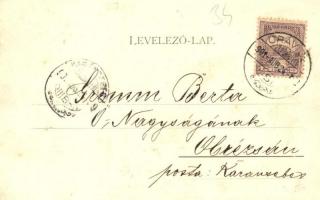 34
LEVELEZŐ-LAP.
Gramm Berta
Ő Nagyságának
Obrézsán
posta: Karansebes